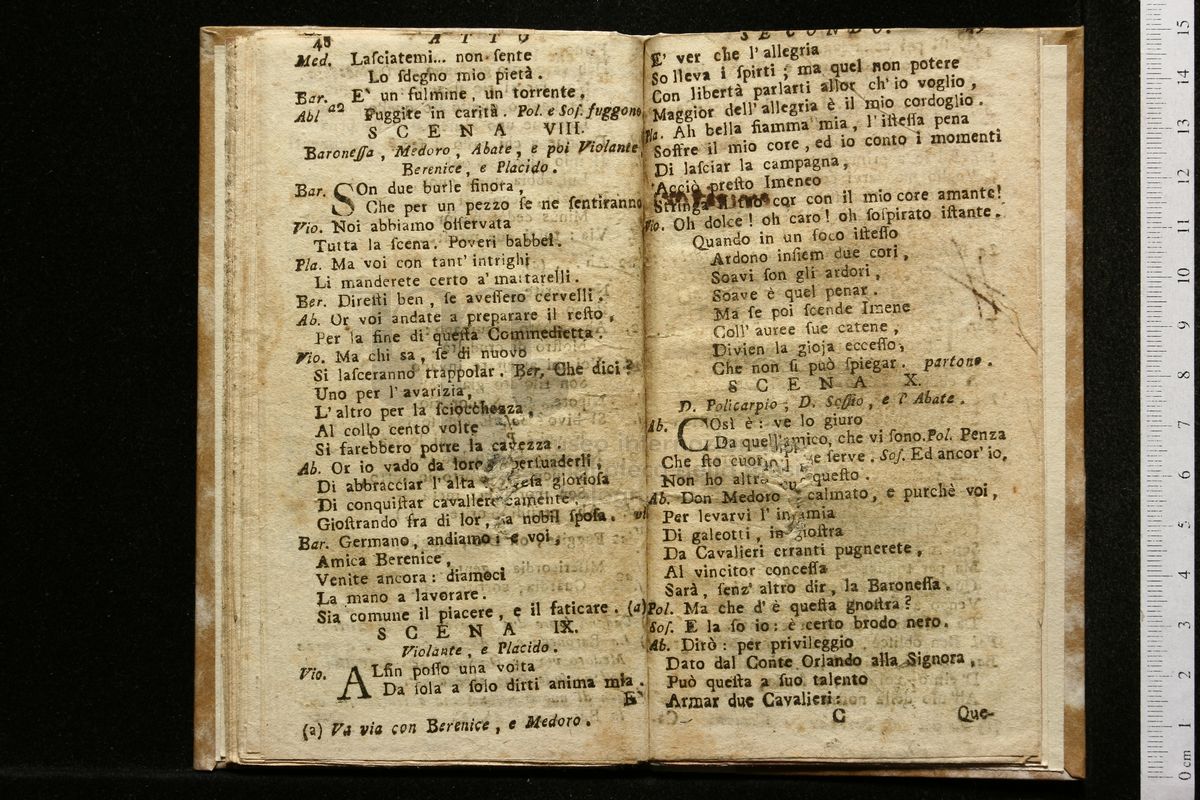 48 ATTO
Med. Laſciatemi... non ſente
Lo ſdegno mio pietà.
Bar. E' un fulmine, un torrente.
Abl a2 Fuggite in carità. Pol. e Soſ. fuggono
SCENA VIII.
Baroneſſa, Medoro, Abate, e poi Violante
Berenice, e Placido.
Bar. SOn due burle finora,
Che per un pezzo ſe ne ſentiranno
Vio. Noi abbiamo oſſervata
Tutta la ſcena. Poveri babbei.
Pla. Ma voi con tant' intrighi
Li manderete certo a' mattarelli.
Ber. Direſti ben, ſe aveſſero cervelli.
Ab. Or voi andate a preparare il reſto,
Per la fine di queſta Commedietta.
Vio. Ma chi sa, ſe di nuovo
Si laſceranno trappolar. Ber. Che dici?
Uno per l' avarizia,
L' altro per la ſciocchezza,
Al collo cento volte
Si farebbero porre la cavezza.
Ab. Or io vado da loro perſuaderli,
Di abbracciar l' alta glorioſa
Di conquiſtar
Gioſtrando fra di lor, nobil ſpoſa. vi
Bar. Germano, andiamo: e voi,
Amica Berenice,
Venite ancora: diamoci
La mano a lavorare.
Sia comune il piacere, e il faticare. (a)
SCENA IX.
Violante, e Placido.
Vio. ALfin poſſo una volta
Da ſola a ſolo dirti anima mia.
E'
(a) Va via con Berenice, e Medoro.
SECONDO.
E' ver che l' allegria
Solleva i ſpirti; ma quel non potere
Con libertà parlarti allor ch' io voglio,
Maggior dell' allegria è il mio cordoglio.
Pla. Ah bella fiamma mia, l' iſteſſa pena
Soffre il mio core, ed io conto i momenti
Di laſciar la campagna,
Acciò preſto Imeneo
Stringa cor con il mio core amante!
Vio. Oh dolce! oh caro! oh ſoſpirato iſtante.
Quando in un foco iſteſſo
Ardono inſiem due cori,
Soavi ſon gli ardori,
Soave è quel penar.
Ma ſe poi ſcende Imene
Coll' auree ſue catene,
Divien la gioja ecceſſo,
Che non ſi può ſpiegar. partono.
SCENA X.
D. Policarpio, D. Soſſio, e l' Abate.
Ab. COsì è: ve lo giuro
Da quell' amico, che vi ſono. Pol. Penza
Che ſto ſerve. Soſ. Ed ancor' io,
Non ho queſto.
Ab. Don Medoro calmato, e purchè voi,
Per levarvi l' infamia
Di galeotti, in gioſtra
Da Cavalieri erranti pugnerete,
Al vincitor conceſſa
Sarà, ſenz' altro dir, la Baroneſſa.
Pol. Ma che d' è queſta gnoſtra?
Soſ. E la ſo io: è certo brodo nero.
Ab. Dirò: per privileggio
Dato dal Conte Orlando alla Signora,
Può queſta a ſuo talento
Armar due Cavalieri:
C Que-
15
14
13
12
11
10
9
8
7
6
5
4
3
2
1
0 cm